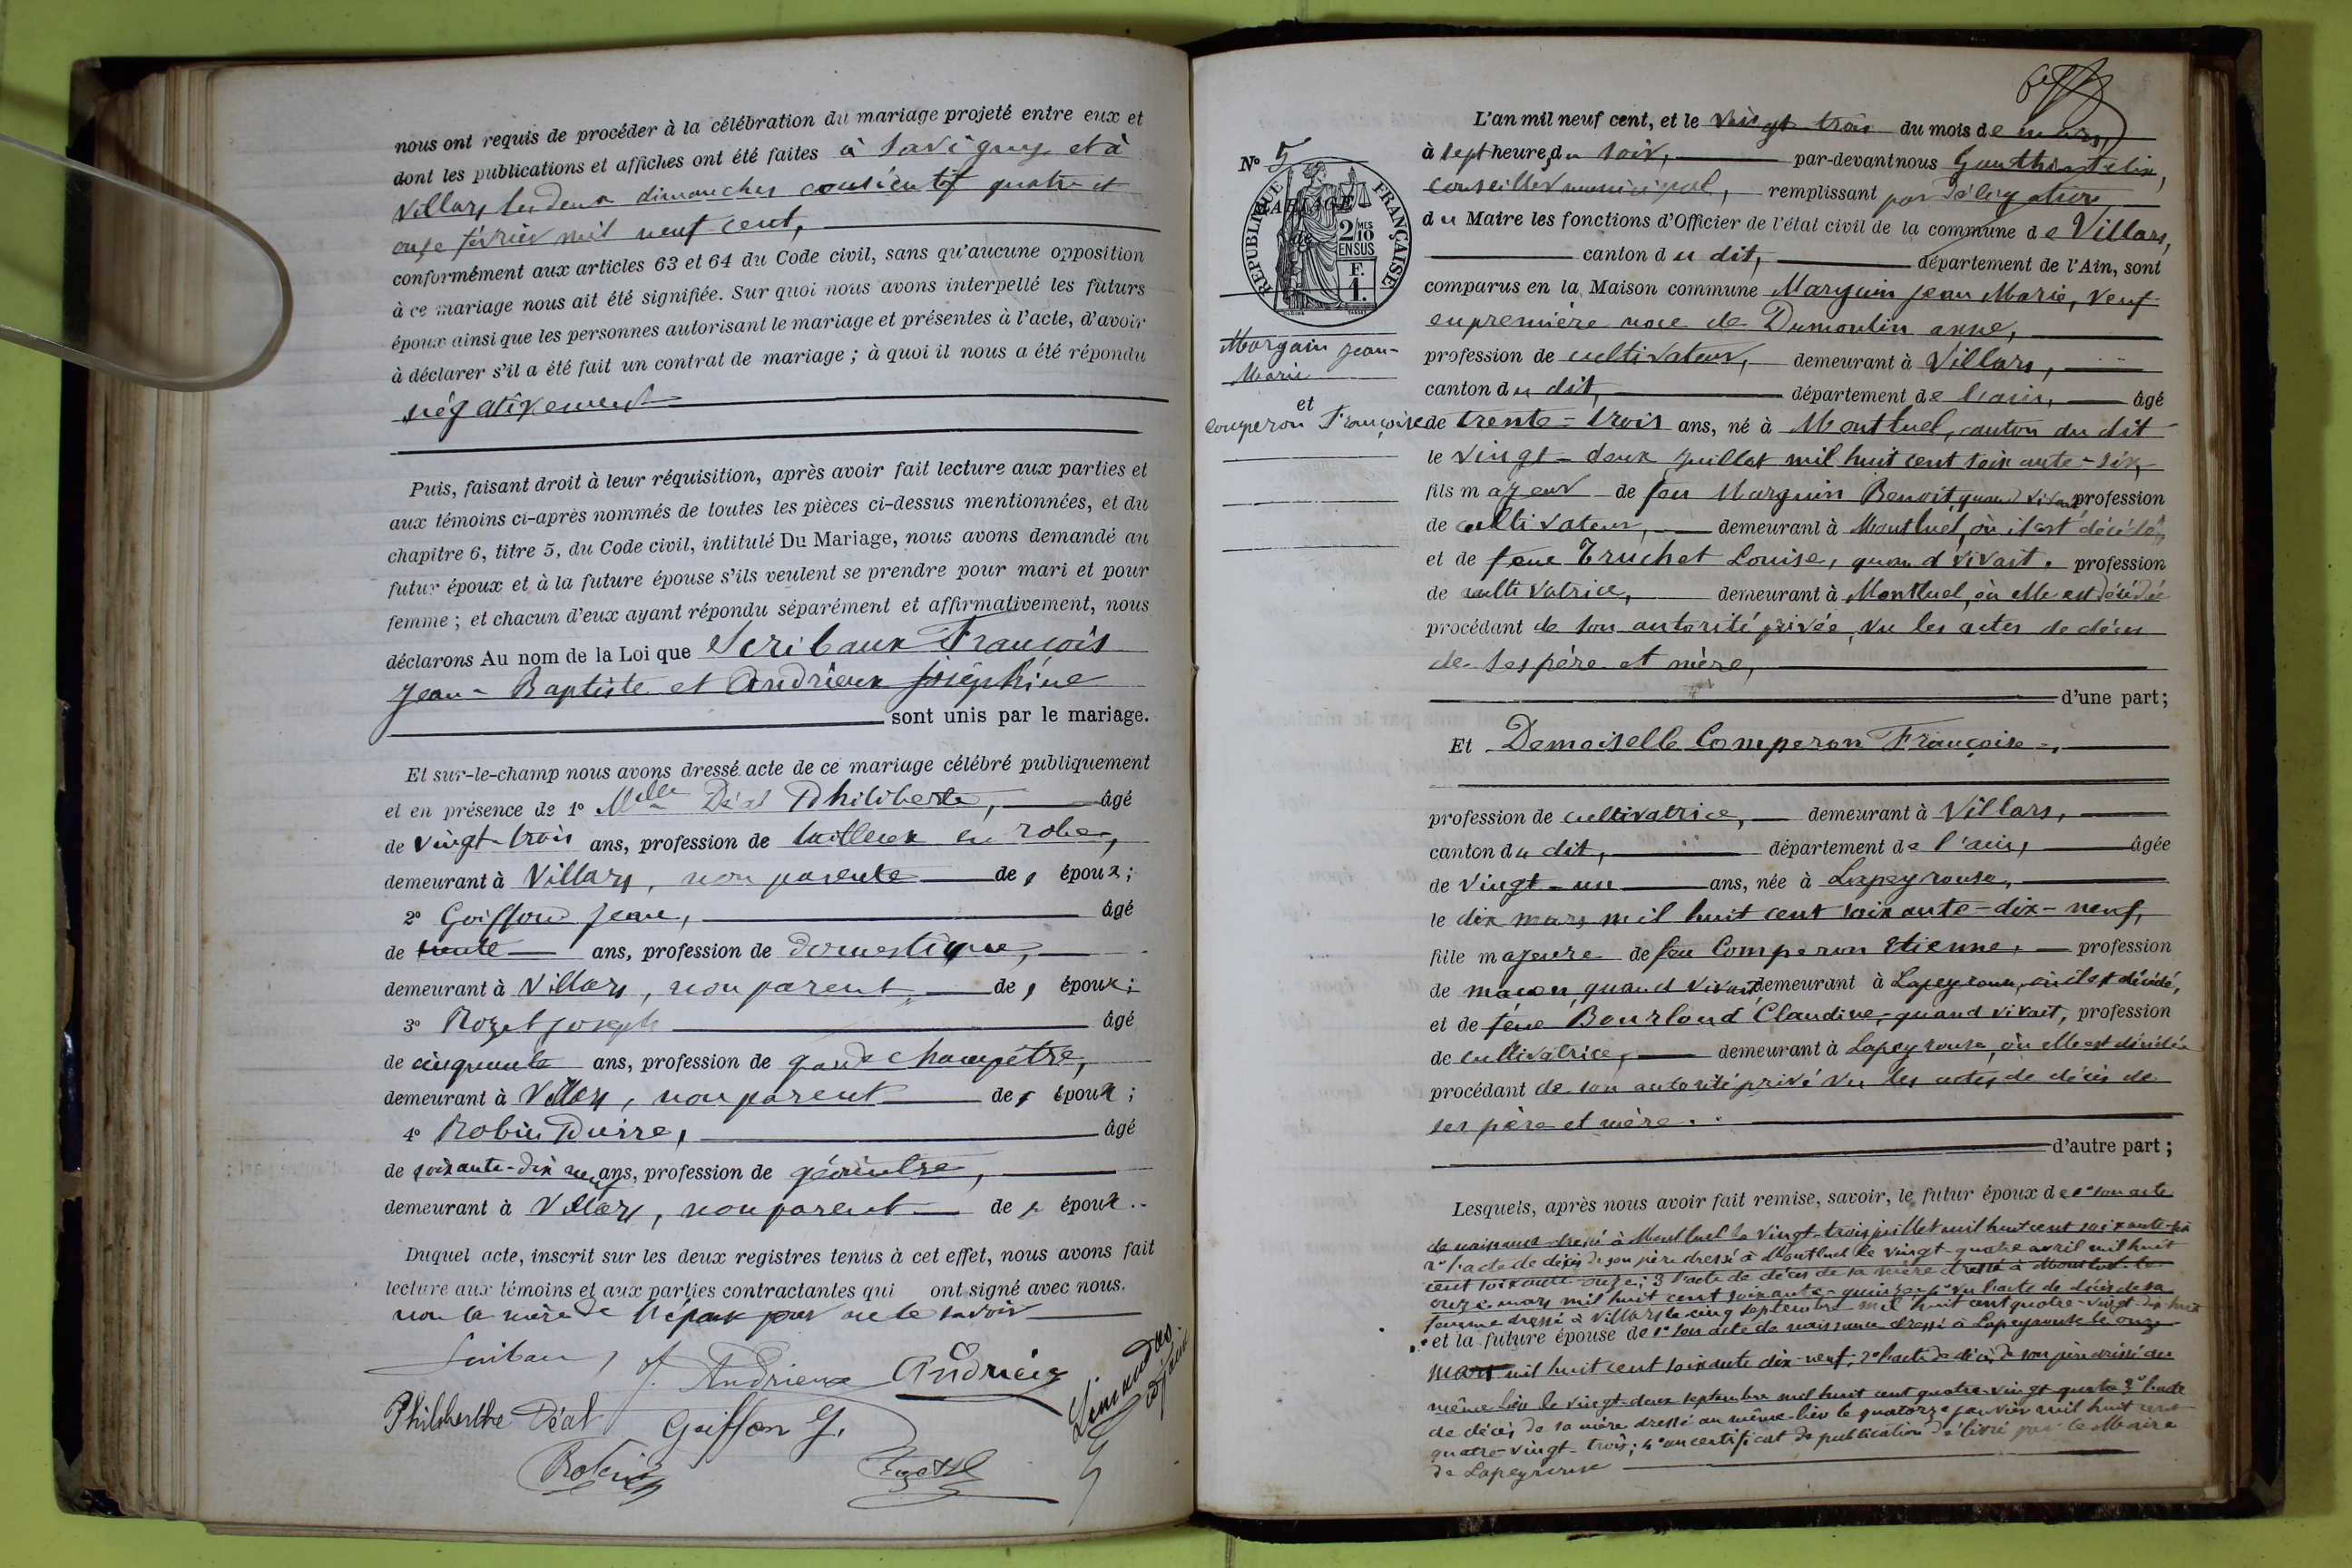 nous ont requis de procéder à la célébration du mariage projeté entre eux et
dont les publications et affiches ont été faites à Savigny et à
Villars les deux dimanches consécutif quatre et
onze février mil neuf cent,
conformément aux articles 63 et 64 du Code civil, sans qu'aucune opposition
à ce mariage nous ait été signifiée. Sur quoi nous avons interpellé les futurs
époux ainsi que les personnes autorisant le mariage et présentes à l'acte, d'avoir
à déclarer s'il a été fait un contrat de mariage ; à quoi il nous a été répondu
négativement
Puis, faisant droit à leur réquisition, après avoir fait lecture aux parties et
aux témoins ci-après nommés de toutes les pièces ci-dessus mentionnées, et du
chapitre 6, titre 5, du Code civil, intitulé Du Mariage, nous avons demandé au
futur époux et à la future épouse s'ils veulent se prendre pour mari et pour
femme ; et chacun d'eux ayant répondu séparément et affirmativement, nous
déclarons Au nom de la Loi que Scribaux François
Jean-Baptiste et Andrieux Joséphine
sont unis par le mariage.
Et sur-le-champ nous avons dressé acte de ce mariage célébré publiquement
et en présence de 1° Melle Déal Philiberte, âgé
de vingt-trois ans, profession de tailleuse en robes,
demeurant à Villars, non parente de s époux ;
2° Goiffon Jean, âgé
de trente ans, profession de domestique,
demeurant à Villars, non parent de s époux ;
3° Rozet Joseph âgé
de cinquante ans, profession de garde champêtre,
demeurant à Villars, non parent de s époux ;
4° Robin Pierre, âgé
de soixante-dix neuf ans, profession de géomètre,
demeurant à Villars, non parent de s époux..
Duquel acte, inscrit sur les deux registres tenus à cet effet, nous avons fait
lecture aux témoins et aux parties contractantes qui ont signé avec nous.
non la mère de l'époux pour ne le savoir
J. Andrieux Andrieux
Philiberthe Déal Goiffon J.
Robin
L'an mil neuf cent, et le vingt trois du mois de mars,
N° 5
à sept heures du soir, par-devant nous Gauthier Félix,
conseiller municipal, remplissant par délégation
RÉPUBLIQUE FRANÇAISE
MARIAGE
de
2/10 MES
EN SUS
F.
1.
du Maire les fonctions d'Officier de l'état civil de la commune de Villars,
canton du dit, département de l'Ain, sont
comparus en la Maison commune Marguin Jean Marie, veuf
en première noce de Dumoulin anne,
Marguin Jean-
Marie
et
Comperon Françoise
profession de cultivateur, demeurant à Villars,
canton du dit, département de l'ain, âgé
de trente-trois ans, né à Montluel, canton du dit
le vingt-deux juillet mil huit cent soixante-six,
fils majeur de feu Marguin Benoit, quand vivait profession
de cultivateur, demeurant à Montluel, où il est décédé,
et de feue Truchet Louise, quand vivait, profession
de cultivatrice, demeurant à Montluel, où elle est décédée
procédant de son autorité privée, vu les actes de décès
de ses père et mère,
d'une part ;
Et Demoiselle Comperon Françoise,
profession de cultivatrice, demeurant à Villars,
canton du dit, département de l'ain, âgée
de vingt-un ans, née à Lapeyrouse,
le dix mars mil huit cent soixante-dix-neuf,
fille majeure de feu Comperon Etienne, profession
de maçon, quand vivait, demeurant à Lapeyrouse, où il est décédé,
et de feue Bourloud Claudine, quand vivait, profession
de cultivatrice, demeurant à Lapeyrouse, où elle est décédée
procédant de son autorité privé vu les actes de décès de
ses père et mère.
d'autre part ;
Lesquels, après nous avoir fait remise, savoir, le futur époux de 1° son acte
de naissance dressé à Montluel le vingt-trois juillet mil huit cent soixante-six
2° l'acte de décès de son père dressé à Montluel le vingt-quatre avril mil huit
cent soixante-onze ; 3° l'acte de décès de sa mère dressé à Montluel le
onze mars mil huit cent soixante-quinze, 4° vu l'acte de décès de sa
femme dressé à Villars le cinq septembre mil huit cent quatre-vingt-dix-huit
et la future épouse de 1° son acte de naissance dressé à Lapeyrouse le onze
mars mil huit cent soixante dix-neuf ; 2° l'acte de décès de son père dressé au
même lieu le vingt-deux septembre mil huit cent quatre-vingt quatre 3° l'acte
de décès de sa mère dressé au même lieu le quatorze janvier mil huit cent
quatre-vingt-trois ; 4° un certificat de publication délivré par le Maire
de Lapeyrouse